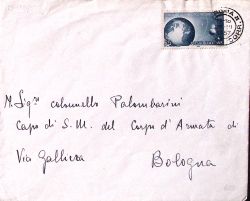 M. Sig.re colonnello Palombarini
Capo di S. M. del Corpo d'Armata di
Via Galliera Bologna